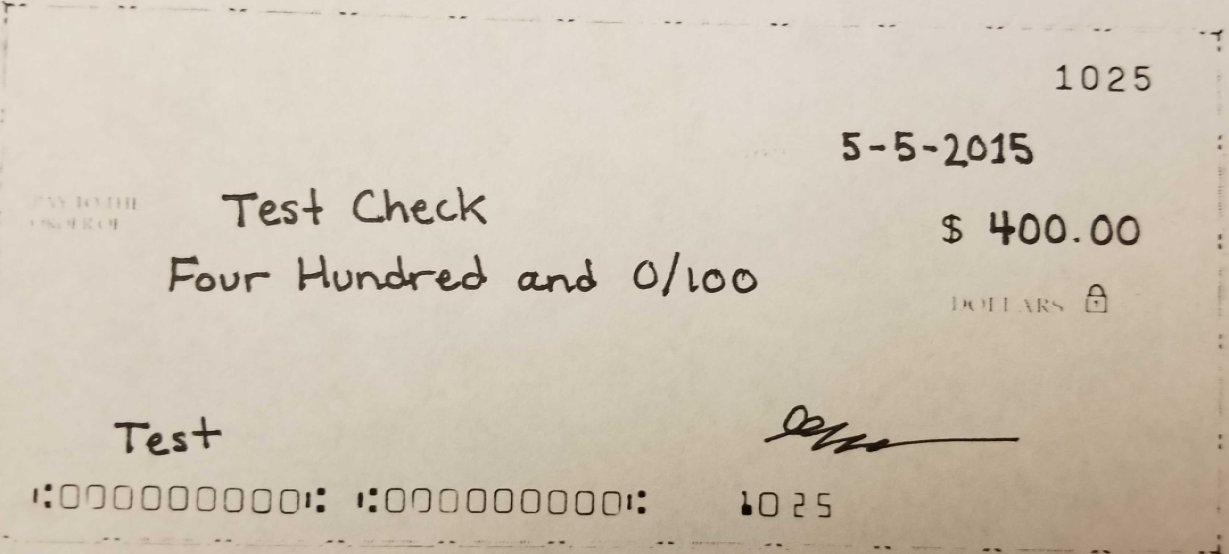 1025
5-5-2015
PAY TO THE
ORDER OF
Test Check
$ 400.00
Four Hundred and 0/100
DOLLARS
Test
⑆000000000⑆ ⑆000000000⑆ 1025